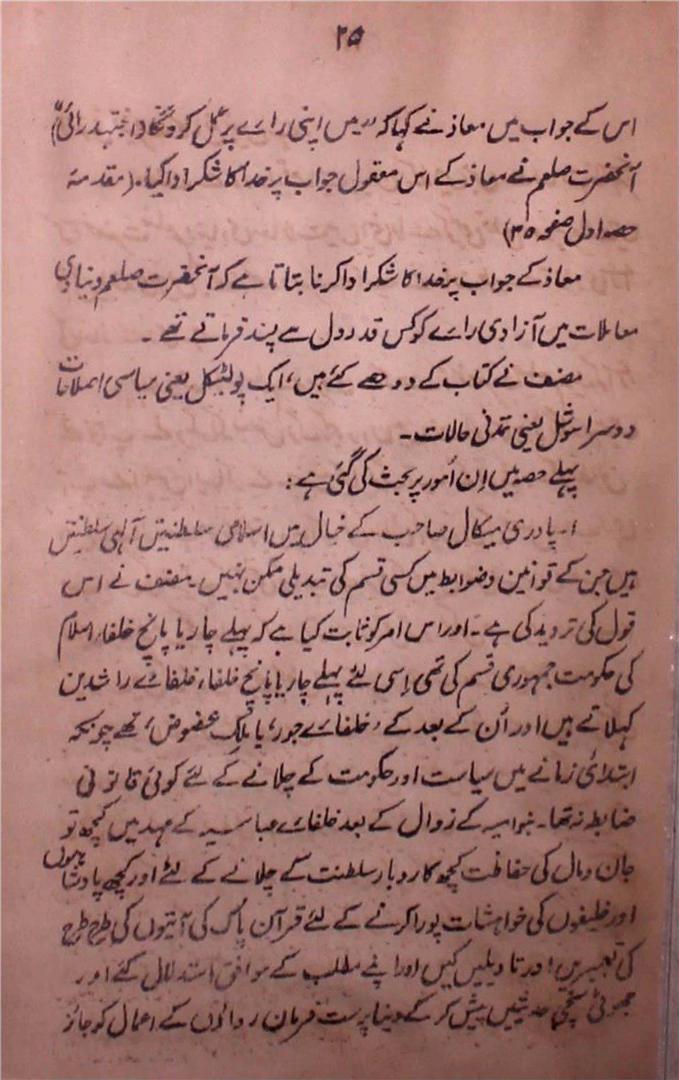 ۲۵
اس کے جواب میں معاذ نے کہا کہ "میں اپنی راے پر عمل کرونگا (اجتہد رائی)"
آنحضرت صلعم نے معاذ کے اس معقول جواب پر خدا کا شکر ادا کیا۔ (مقدمہ
حصہ اول صفحہ ۳۵)
معاذ کے جواب پر خدا کا شکر ادا کرنا بتاتا ہے کہ آنحضرت صلعم دنیاوی
معاملات میں آزادی راے کو کس قدر دل سے پسند فرماتے تھے۔
مصنف نے کتاب کے دو حصے کئے ہیں، ایک پولٹیکل یعنی سیاسی اصلاحات
دوسرا سوشل یعنی تمدنی حالات۔
پہلے حصہ میں اِن اُمور پر بحث کی گئی ہے:
۱۔ پادری میکال صاحب کے خیال میں اسلامی سلطنتیں آلٰہی سلطنتیں
ہیں جن کے قوانین وضوابط میں کسی قسم کی تبدیلی ممکن نہیں۔ مصنف نے اس
قول کی تردید کی ہے۔ اور اس امر کو ثابت کیا ہے کہ پہلے چار یا پانچ خلفاء اسلام
کی حکومت جمہوری قسم کی تھی اِسی لئے پہلے چار یا پانچ خلفاء، خلفاے راشدین
کہلاتے ہیں اور اُن کے بعد کے 'خلفاے جور' یا 'ملک عضوض' تھے چونکہ
ابتدائی زمانے میں سیاست اور حکومت کے چلانے کے لئے کوئی قانونی
ضابطہ نہ تھا۔ بنوامیہ کے زوال کے بعد خلفاے عباسیہ کے عہد میں کچھ تو
جان ومال کی حفاظت کچھ کاروبار سلطنت کے چلانے کے لئے اور کچھ پادشاہوں
اور خلیفوں کی خواہشات پورا کرنے کے لئے قرآن پاک کی آیتوں کی طرح طرح
کی تعبیریں اور تاویلیں کیں اور اپنے مطلب کے موافق استدلال کئے اور
جھوٹی سچّی حدیثیں پیش کر کے دنیا پرست فرمان رواؤں کے اعمال کو جائز